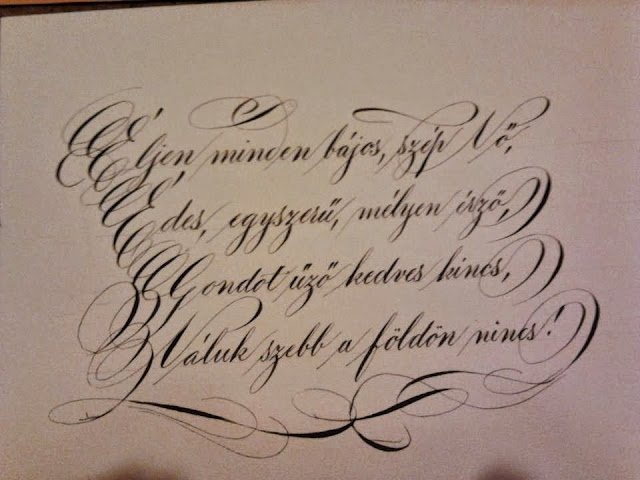 Éljen minden bájos, szép Nő,
Édes, egyszerű, mélyen érző,
Gondot űző kedves kincs,
Náluk szebb a földön nincs!